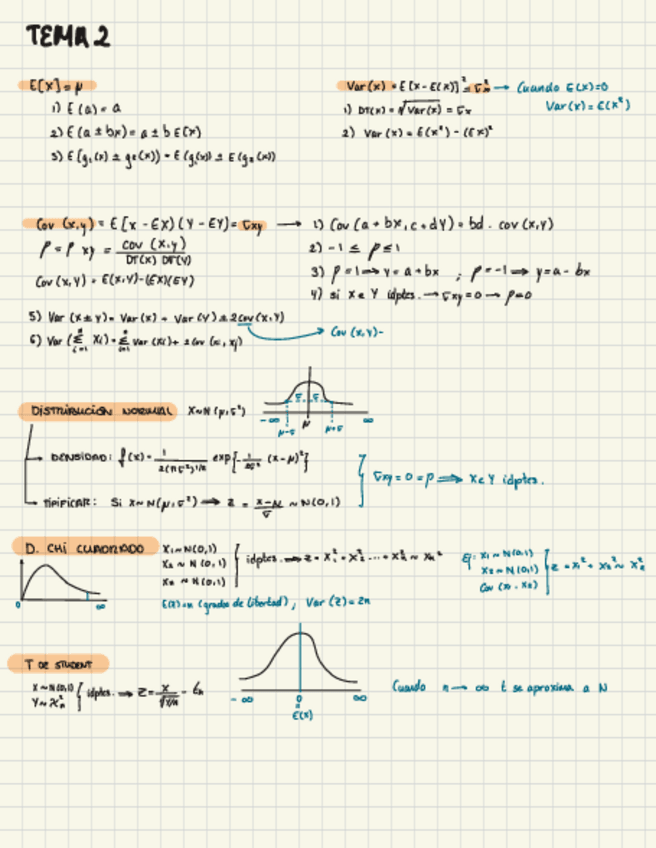 TEMA 2
E[X] = μ
1) E(a) = a
2) E(a ± bx) = a ± b E(x)
3) E(g₁(x) ± g₂(x)) = E(g₁(x)) ± E(g₂(x))
Var(x) = E[X-E(X)]² = σ²x → Cuando E(X)=0
Var(x) = E(X²)
1) DT(x) = √Var(x) = σx
2) Var(x) = E(x²) - (EX)²
Cov(x,y) = E[X - EX)(Y - EY) = σxy →
ρ = ρxy = cov(x,y) / DT(x) DT(y)
Cov(x,y) = E(x,y)-(EX)(EY)
1) Cov(a + bX, c + dY) = bd · cov(x,y)
2) -1 ≤ ρ ≤ 1
3) ρ=1 ⟹ y = a + bx ; ρ=-1 ⟹ y = a - bx
4) si X e Y idptes. → σxy = 0 → ρ=0
5) Var(x ± y) = Var(x) + Var(y) ± 2cov(x,y)
6) Var(Σ Xi) = Σ Var(Xi) + 2 Cov(xi, xj)
Cov(x,y)-
DISTRIBUCIÓN NORMAL X~N(μ,σ²)
σ σ
-∞ μ ∞
μ-σ μ+σ
DENSIDAD: f(x) = 1 / 2(πσ²)^1/2 exp{-1/2σ² (x-μ)²}
TIPIFICAR: Si X~N(μ,σ²) ⟹ Z = x-μ / σ ~ N(0,1)
σxy = 0 = ρ ⟹ X e Y idptes.
D. CHI CUADRADO
X₁~N(0,1)
X₂~N(0,1)
Xn~N(0,1)
idptes. ⟹ Z = X₁² + X₂² ... + Xn² ~ χn²
Ej: X₁~N(0,1)
X₂~N(0,1)
Cov(X₁,X₂)
Z = X₁² + X₂² ~ χ₂²
0 ∞
E(Z)=n (grados de libertad), Var(Z)=2n
T DE STUDENT
X~N(0,1)
Y~χn²
idptes. ⟹ Z = X / √Y/n ~ tn
-∞ 0 ∞
E(x)
Cuando n → ∞ t se aproxima a N